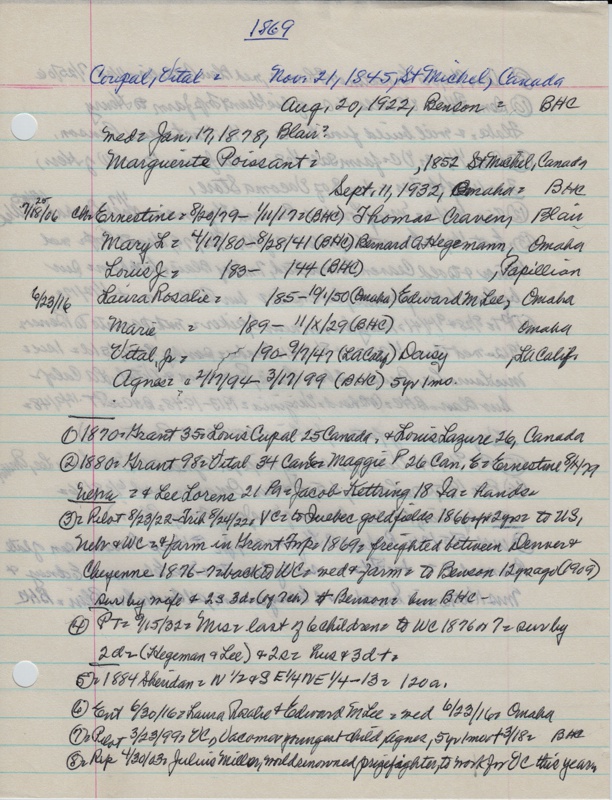 1869
Coupal, Vital = Nov. 21, 1845, St Michel, Canada
Aug, 20, 1922, Benson = BHC
med = Jan, 17, 1878, Blair?
Marguerite Poissant = , 1852 St Michel, Canada
Sept. 11, 1932, Omaha = BHC
Ch = Ernestine = 8/20/79 - 1/11/17 = (BHC) Thomas Craven, Blair
Mary L = 4/17/80 - 8/28/41 (BHC) Bernard A. Hegemann, Omaha
Louis J = /83 - /44 (BHC) , Papillion
6/23/16 Laura Rosalie = /85 - 10/1/50 (Omaha) Edward M Lee, Omaha
Marie = /89 - 11/X/29 (BHC) Omaha
Vital, Jr = /90 - 9/7/47 Daisy , LA Calif.
Agnes = 2/17/94 - 3/17/99 (BHC) 5yr 1mo.
① 1870 = Grant 35 = Louis Cupal 25 Canada, & Louis Lazure 26, Canada
② 1880 = Grant 98 = Vital 34 Can = Maggie P 26 Can, E = Ernestine
= & Lee Lorens 21 Pa = Jacob Kettring 18 Ia = hands =
③ = Pilot 8/23/22 - Trib 8/24/22, VC = to Quebec goldfields 1866 = 2yrs = to US,
Nebr & WC = & farm in Grant Twp = 1869 = freighted between Denver &
Cheyenne 1876-7 = back to WC = med & farm = to Benson 12 yr ago (1909)
sur by wife & 2s 3d = (of 7ch) # Benson = bur BHC -
④ PT = 9/15/32 = Mrs = last of 6 children = to WC 1876 or 7 = sur by
2d = (Hegeman & Lee) & 2s = hus & 3d +=
⑤ = 1884 Sheridan = N 1/2 & S E 1/4 NE 1/4 - 13 = 120 a.
⑥ Ent 6/30/16 = Laura Rosalie & Edward M Lee = med 6/23/16 = Omaha
⑦ = Pilot 3/23/99 = VC, Vacoma youngest child, Agnes, 5yr 1mo + 3/18 = BHC
⑧ = Rep 4/30/03 = Julius Miller, world renowned prizefighter, to work for VC this year